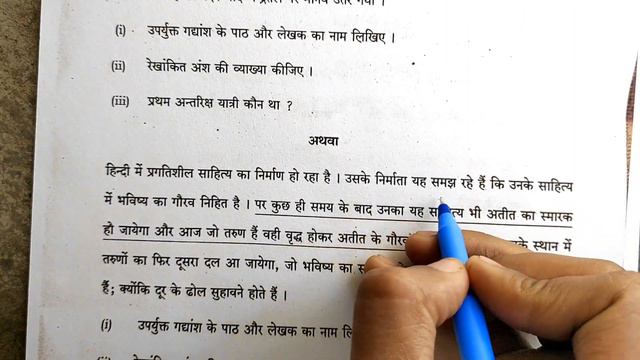 (i) उपर्युक्त गद्यांश के पाठ और लेखक का नाम लिखिए ।
(ii) रेखांकित अंश की व्याख्या कीजिए ।
(iii) प्रथम अन्तरिक्ष यात्री कौन था ?
अथवा
हिन्दी में प्रगतिशील साहित्य का निर्माण हो रहा है । उसके निर्माता यह समझ रहे हैं कि उनके साहित्य
में भविष्य का गौरव निहित है । पर कुछ ही समय के बाद उनका यह साहित्य भी अतीत का स्मारक
हो जायेगा और आज जो तरुण हैं वही वृद्ध होकर अतीत के स्थान में
तरुणों का फिर दूसरा दल आ जायेगा, जो भविष्य का
हैं; क्योंकि दूर के ढोल सुहावने होते हैं ।
(i) उपर्युक्त गद्यांश के पाठ और लेखक का नाम